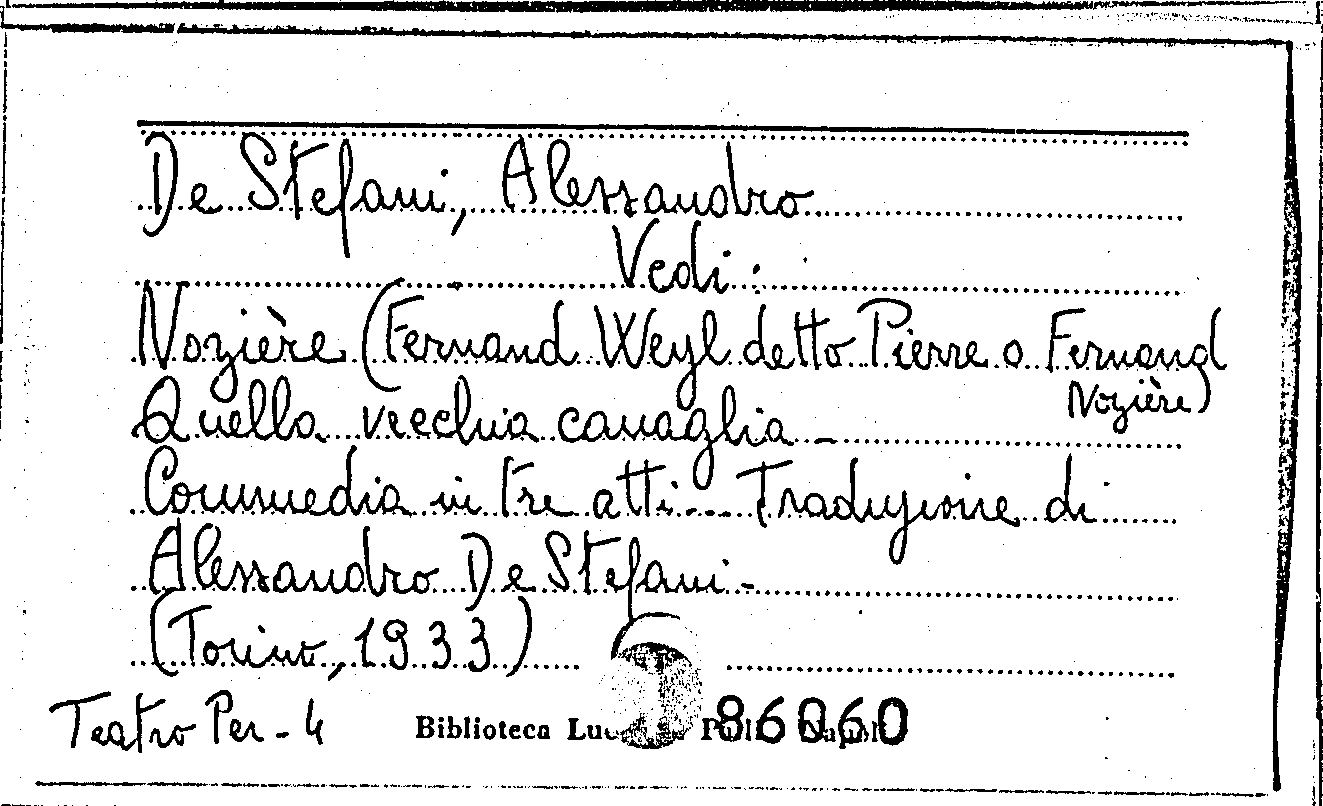 De Stefani, Alessandro
Vedi:
Nozière (Fernand Weyl detto Pierre o Fernand
Nozière)
Quella vecchia canaglia -
Commedia in tre atti.- Traduzione di
Alessandro De Stefani -
(Torino, 1933)
Teatro Per - 4
Biblioteca 86060